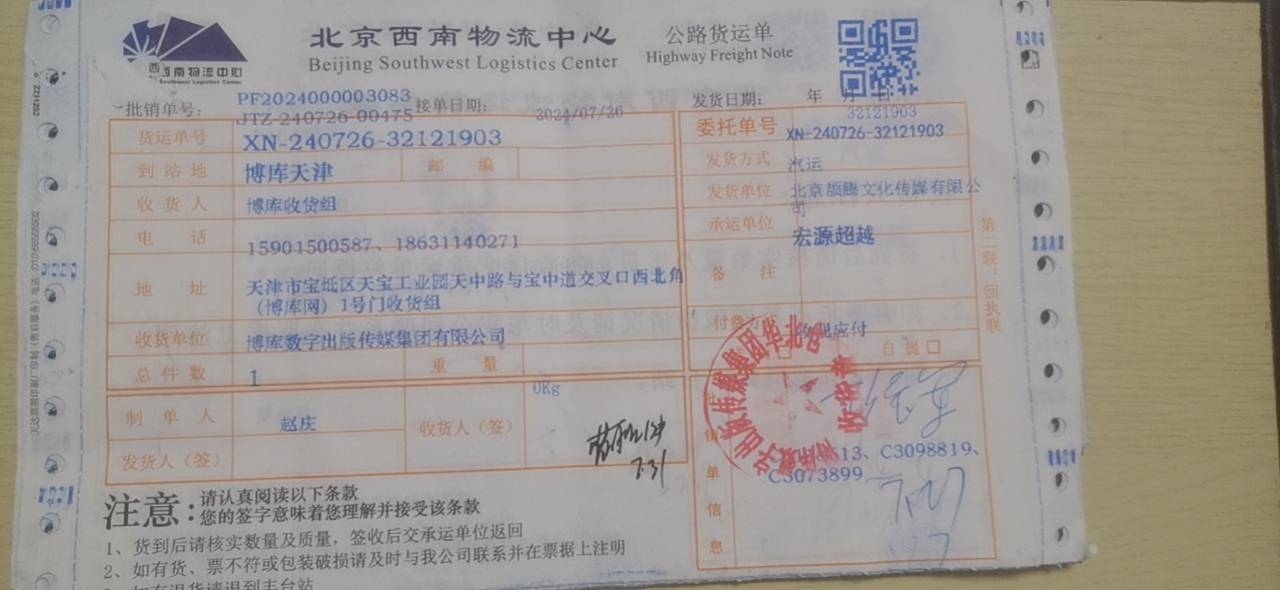 北京西南物流中心
公路货运单
Beijing Southwest Logistics Center
Highway Freight Note
西南物流中心
Southwest Logistics Center
批销单号:
PF2024000003083
JTZ-240726-00475
接单日期:
2024/07/26
发货日期: 年 月 日
32121903
货运单号 XN-240726-32121903
委托单号 XN-240726-32121903
到站地 博库天津 邮 编
发货方式 汽运
收货人 博库收货组
发货单位 北京颉腾文化传媒有限公
司
电 话 15901500587、18631140271
承运单位 宏源超越
地 址 天津市宝坻区天宝工业园天中路与宝中道交叉口西北角
(博库网)1号门收货组
备 注
收货单位 博库数字出版传媒集团有限公司
付费方 应付
总件数 1 重 量 0Kg
自提口
制单人 赵庆 收货人(签)
7.31
发货人(签)
销单信息
13、C3098819、
C3073899
第二联:回执联
注意:
请认真阅读以下条款
您的签字意味着您理解并接受该条款
1、货到后请核实数量及质量,签收后交承运单位返回
2、如有货、票不符或包装破损请及时与我公司联系并在票据上注明